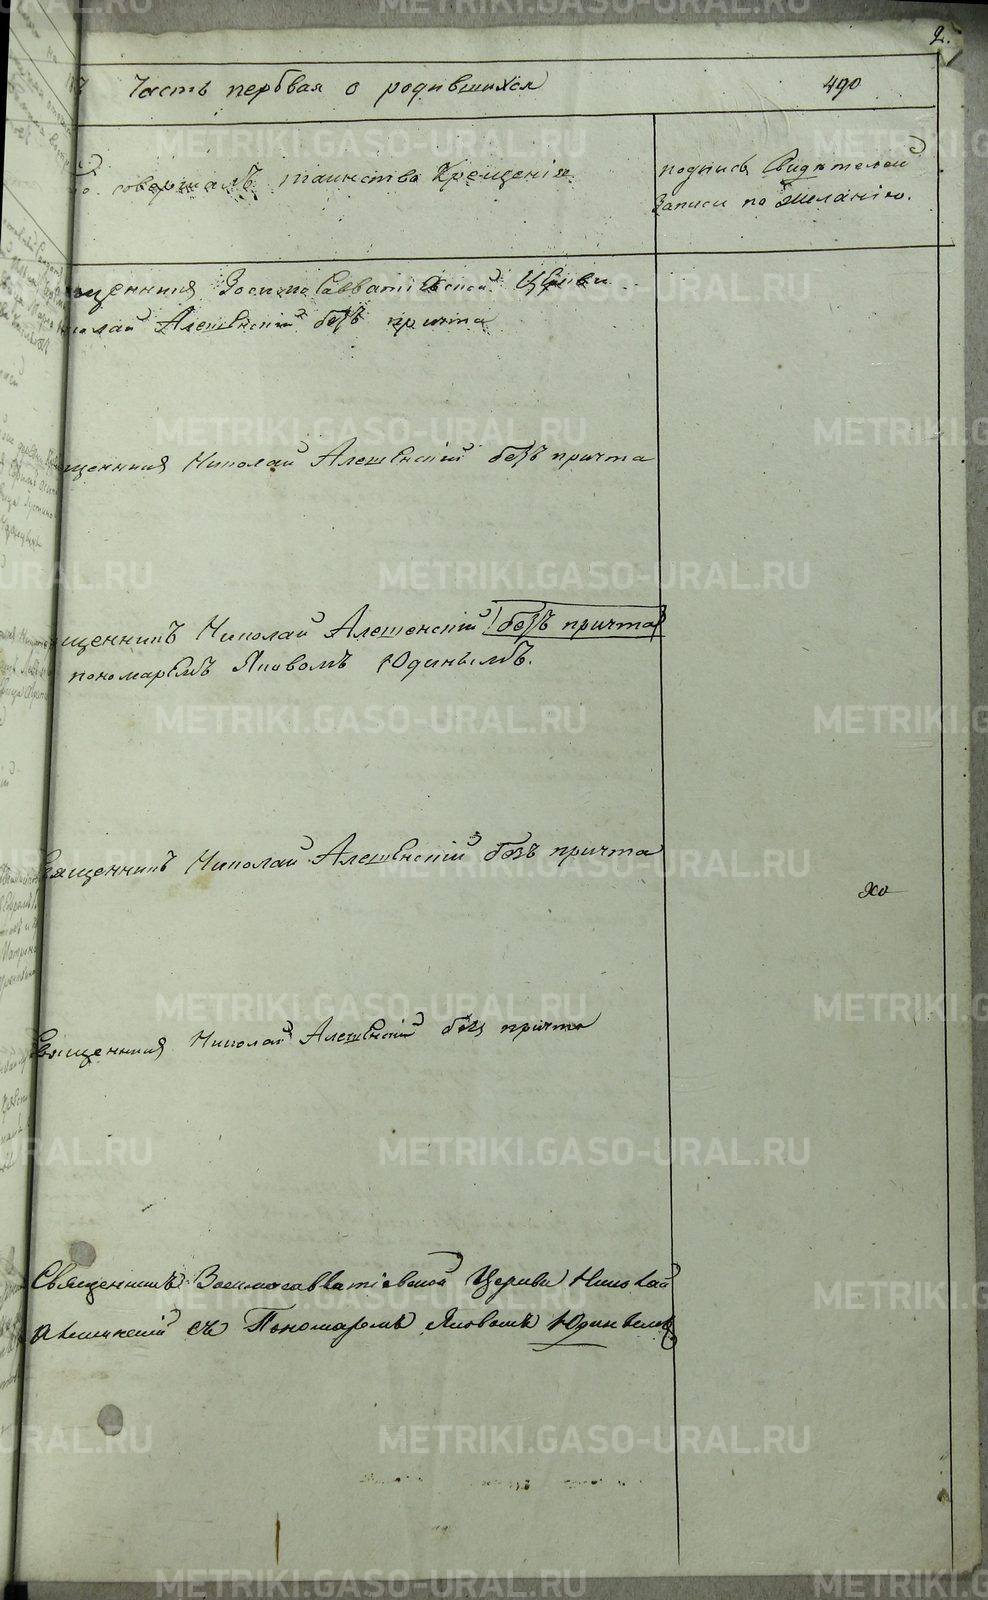 2.
Часть первая о родившихся 490
совершалъ таинство Крещенія
подпись Свидѣтелей
Записи по Желанію.
щенникъ Зосимо Савватіевской Церкви
колай Алешенскій безъ причта
щенникъ Николай Алешенскій безъ причта
щенникъ Николай Алешенскій безъ причта
пономаремъ Яковомъ Юдинымъ.
священникъ Николай Алешенскій безъ причта
священникъ Николай Алешенскій безъ причта
Священникъ Зосимосавватіевской Церкви Николай
Алешенскій съ Пономаремъ Яковомъ Юдинымъ
METRIKI.GASO-URAL.RU